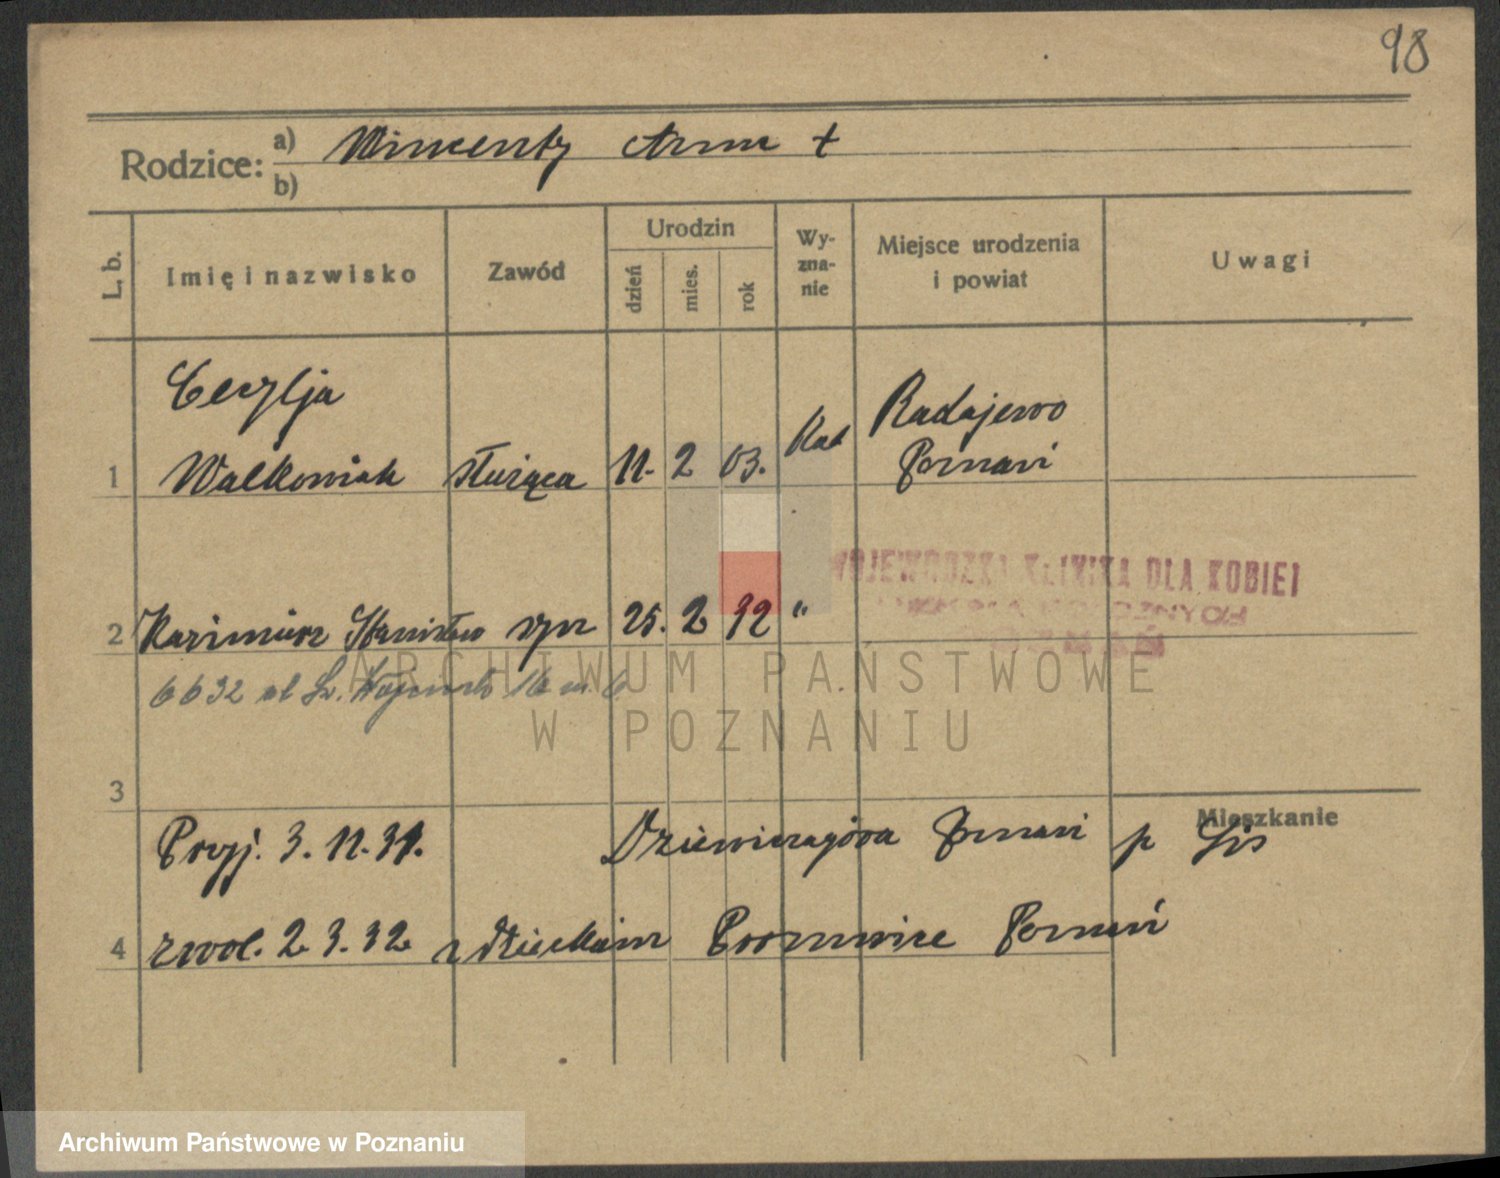 98
Rodzice: a) Wincenty Anna +
b)
L. b. Imię i nazwisko Zawód Urodzin dzień mies. rok Wy-zna-nie Miejsce urodzenia i powiat Uwagi
Cecylja Radajewo
1 Walkowiak służąca 11. 2 03. Kat Poznań
WOJEWÓDZKA KLINIKA DLA KOBIET
2 Kazimierz Stanisław syn 25. 2 32 "
6632 ul Św. Wojciech 16 m 6
ARCHIWUM PAŃSTWOWE
W POZNANIU
3
Mieszkanie
Przyj. 3. 11. 31. Dziewiczagóra Poznań p Lis
4 zwol. 2 3. 32 z dzieckiem Poznań
Archiwum Państwowe w Poznaniu